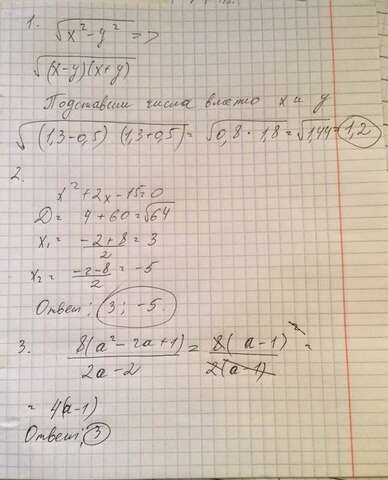 1. √x² - y² =>
√(x-y)(x+y)
Подставим числа вместо x и y
√(1,3-0,5) (1,3+0,5) = √0,8 · 1,8 = √1,44 = 1,2
2.
x² + 2x - 15 = 0
D = 4 + 60 = √64
x₁ = (-2+8)/2 = 3
x₂ = (-2-8)/2 = -5
Ответ: 3; -5.
3. 8(a² - 2a + 1)/(2a - 2) = 8(a-1)²/(2(a-1)) =
= 4(a-1)
Ответ: 3